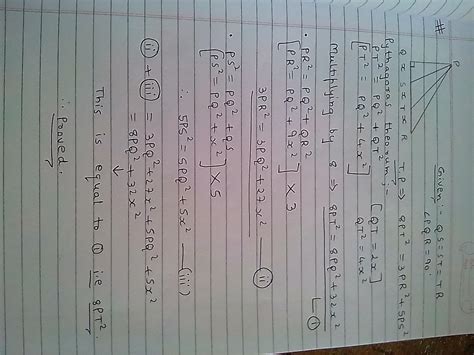 #
Given :- QS = ST = TR
∠PQR = 90°
P
Q x S x T x R
T.P ⇒ 8PT² = 3PR² + 5PS²
Pythagoras theorum :-
PT² = PQ² + QT²
[QT = 2x]
[PT² = PQ² + 4x²]
QT² = 4x²
Multiplying by 8 ⇒ 8PT² = 8PQ² + 32x² — ①
• PR² = PQ² + QR²
[PR² = PQ² + 9x²] × 3
3PR² = 3PQ² + 27x² — (ii)
• PS² = PQ² + QS²
[PS² = PQ² + x²] × 5
∴ 5PS² = 5PQ² + 5x² — (iii)
(ii) + (iii) = 3PQ² + 27x² + 5PQ² + 5x²
= 8PQ² + 32x²
↓
This is equal to ① i.e 8PT².
∴ Proved.